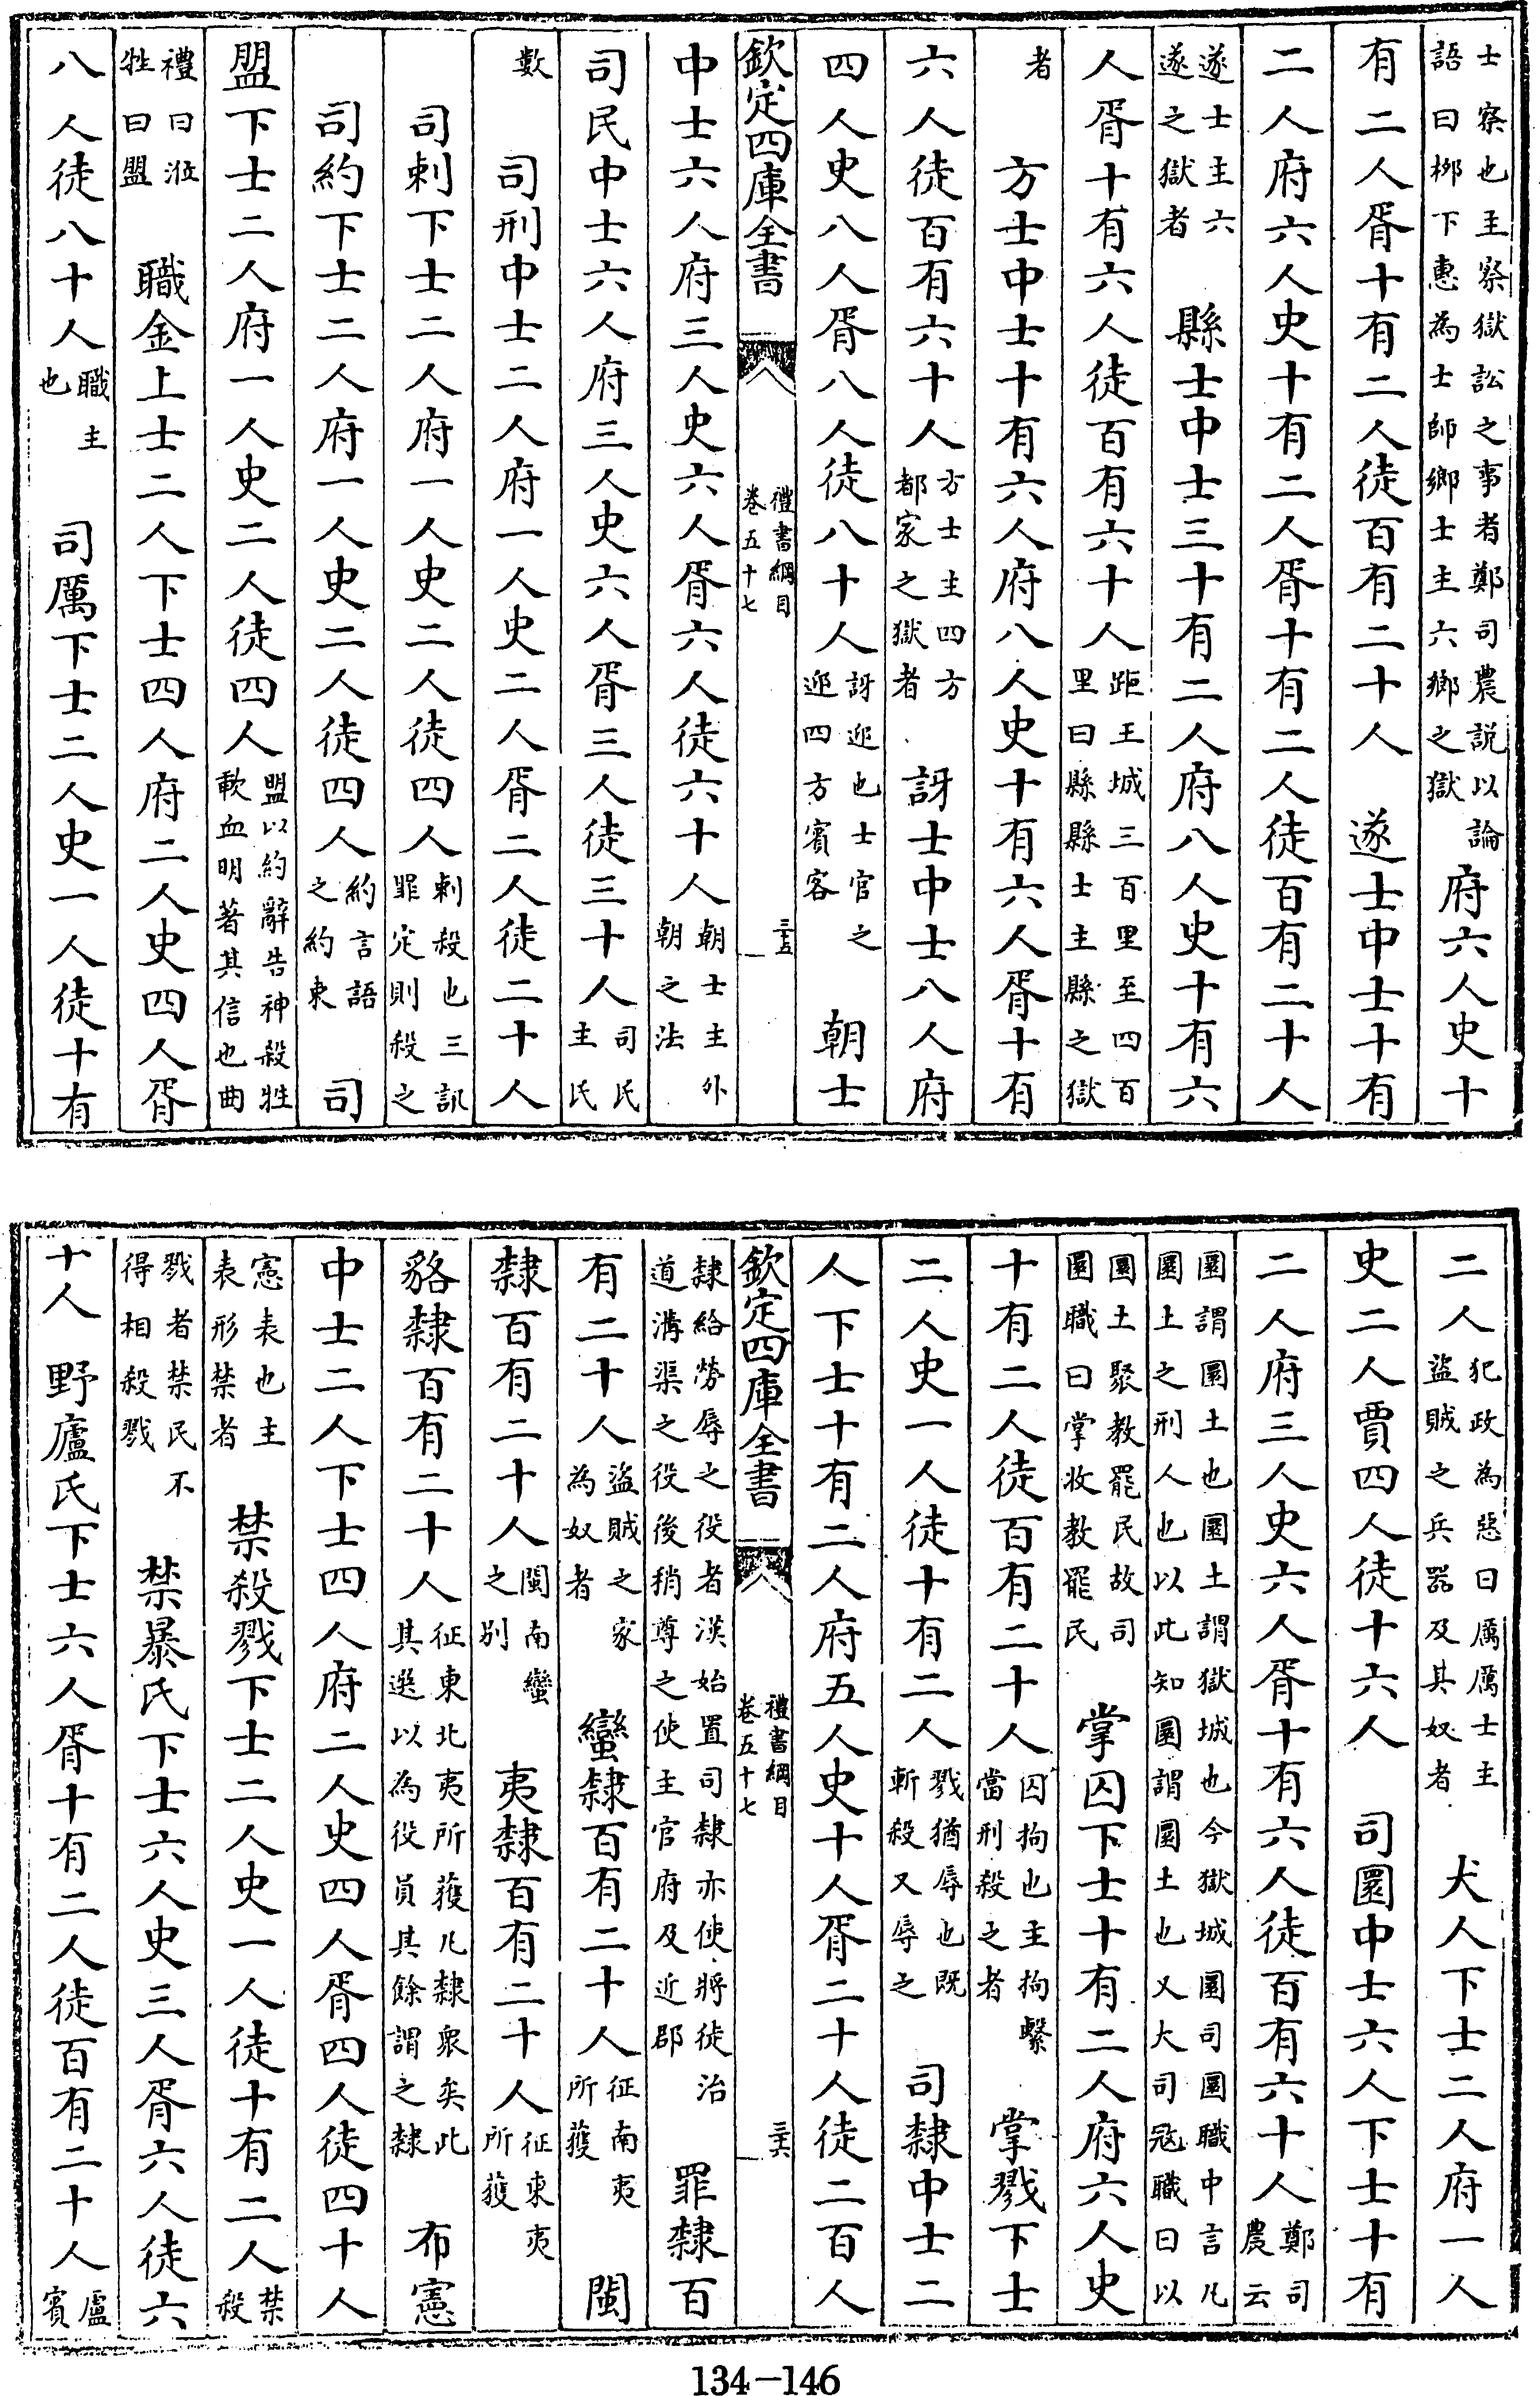 士察也主察獄訟之事者鄭司農説以論語曰栁下惠為士師鄉士主六鄉之獄 府六人史十
有二人胥十有二人徒百有二十人 遂士中士十有
二人府六人史十有二人胥十有二人徒百有二十人
遂士主六遂之獄者 縣士中士三十有二人府八人史十有六
人胥十有六人徒百有六十人距王城三百里至四百里曰縣縣士主縣之獄
者 方士中士十有六人府八人史十有六人胥十有
六人徒百有六十人方士主四方都家之獄者 訝士中士八人府
四人史八人胥八人徒八十人訝迎也士官之迎四方賓客 朝士
欽定四庫全書 禮書綱目 卷五十七 三十五
中士六人府三人史六人胥六人徒六十人朝士主外朝之法
司民中士六人府三人史六人胥三人徒三十人司民主民
數 司刑中士二人府一人史二人胥二人徒二十人
司刺下士二人府一人史二人徒四人刺殺也三訊罪定則殺之
司約下士二人府一人史二人徒四人約言語之約束 司
盟下士二人府一人史二人徒四人盟以約辭告神殺牲歃血明著其信也曲
禮曰涖牲曰盟 職金上士二人下士四人府二人史四人胥
八人徒八十人職主也 司厲下士二人史一人徒十有
二人犯政為惡曰厲厲士主盜賊之兵器及其奴者 犬人下士二人府一人
史二人賈四人徒十六人 司圜中士六人下士十有
二人府三人史六人胥十有六人徒百有六十人鄭司農云
圜謂圜土也圜土謂獄城也今獄城圜司圜職中言凡圜土之刑人也以此知圜謂圜土也又大司宼職曰以
圜土聚教罷民故司圜職曰掌收教罷民 掌囚下士十有二人府六人史
十有二人徒百有二十人囚拘也主拘繫當刑殺之者 掌戮下士
二人史一人徒十有二人戮猶辱也既斬殺又辱之 司隸中士二
人下士十有二人府五人史十人胥二十人徒二百人
欽定四庫全書 禮書綱目 卷五十七 三十六
隸給勞辱之役者漢始置司隸亦使將徒治道溝渠之役後稍尊之使主官府及近郡 罪隸百
有二十人盜賊之家為奴者 蠻隸百有二十人征南夷所獲 閩
隸百有二十人閩南蠻之别 夷隸百有二十人征東夷所獲
貉隸百有二十人征東北夷所獲凡隸衆矣此其選以為役員其餘謂之隸 布憲
中士二人下士四人府二人史四人胥四人徒四十人
憲表也主表形禁者 禁殺戮下士二人史一人徒十有二人禁殺
戮者禁民不得相殺戮 禁暴氏下士六人史三人胥六人徒六
十人 野廬氏下士六人胥十有二人徒百有二十人廬賓
134-146